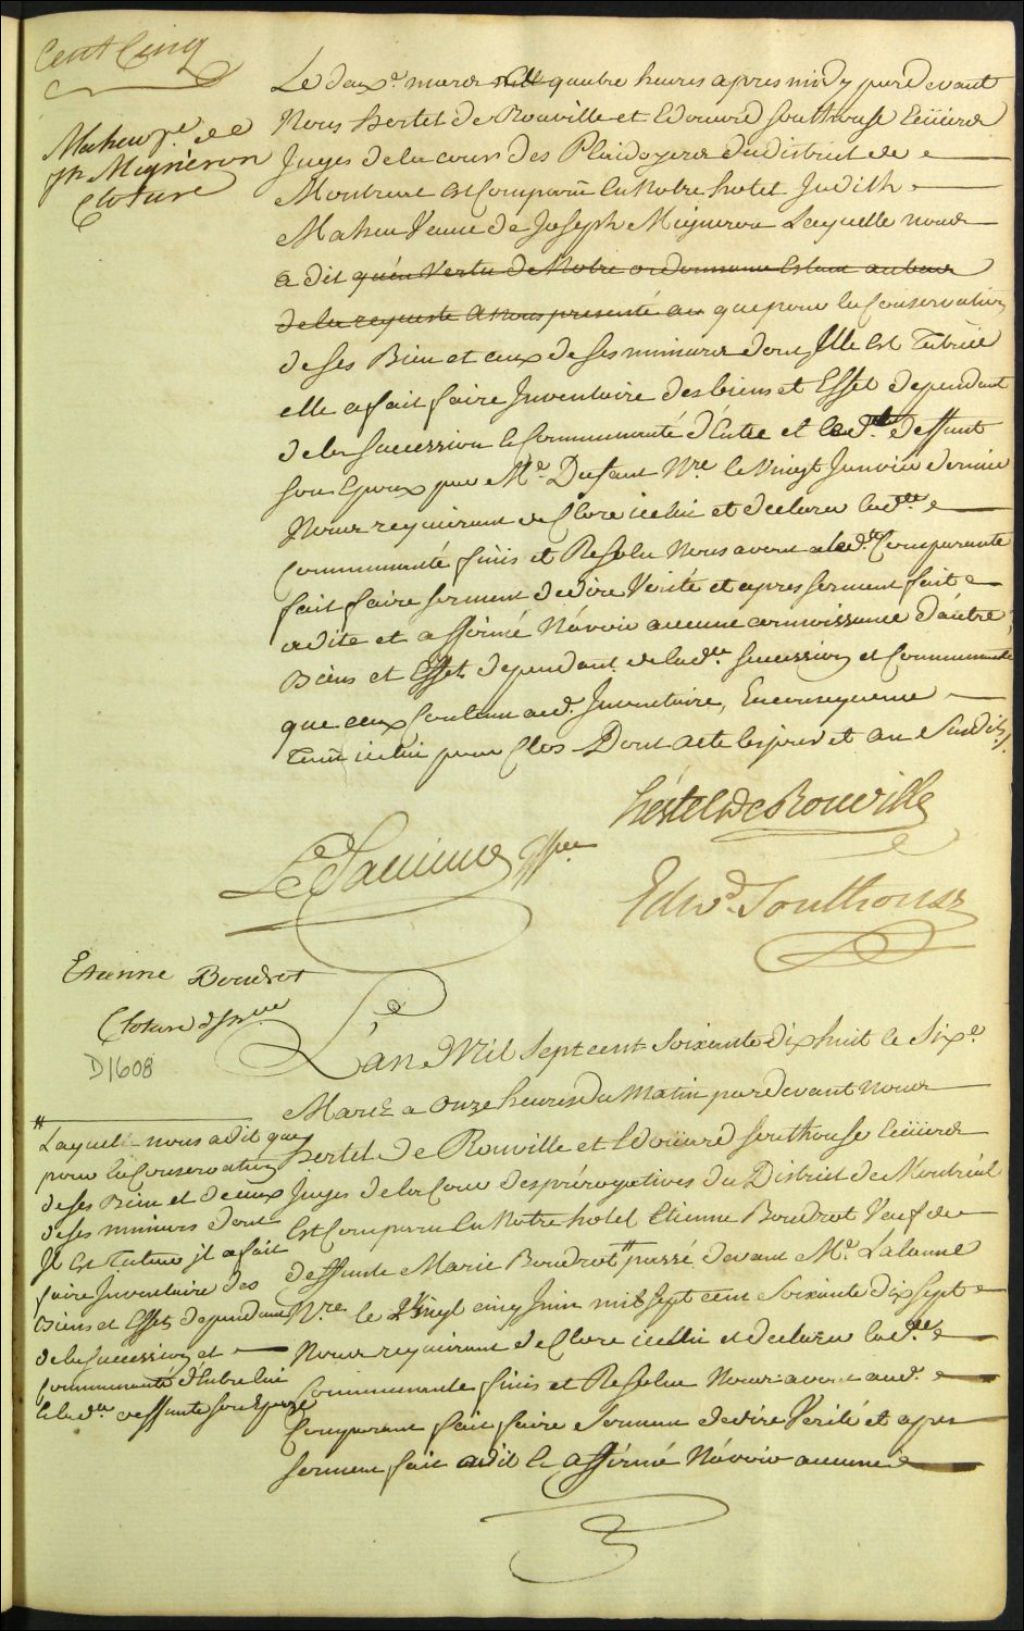 Cent Cinq
Maheu Ve. de
Jh Migneron
Cloture
Le deuxe. mars quatre heures apres midy pardevant
Nous hertel de Rouville et Edouard Southouse Ecuiers
Juges de la cour des Plaidoyers du district de
Montreal Est Comparu En Notre hotel Judith
Maheu Veuve de Joseph Migneron Laquelle nous
a dit qu'en Vertu de Notre ordonnance Estant au bas
de la requeste a nous presenté au que pour la Conservation
de ses Bien et ceux de ses mineurs dont Elle Est Tutrice
elle a fait faire Inventaire des biens et Effet dependant
de la Succession Communauté d'Entre et led. deffunt
son Epoux par Me. Dufaut Nre. le Vingt Janvier dernier
Nous requierant de Clore icelui et declarer lad.
Communauté finis et Resolu Nous avons a lad. Comparante
fait faire serment de dire Verité et apres serment fait
a dite et affirmé N'avoir aucune connoissance d'autre
Biens et Effet dependant de lad. Succession et Communauté
que ceux Contenu aud. Inventaire, En consequence
Tenu icelui pour Clos Dont Acte les jour et an Susdits
hertel De Rouville
Edwd. Southouse
Etienne Boudrot
Cloture d'Inre
D1608
L'an Mil Sept cent Soixante dix huit le Sixe.
Mars a Onze heures du Matin pardevant nous
hertel de Rouville et Edoüard Southouse Ecuiers
Juges de la Cour des prérogatives du District de Montréal
Est Comparu En Notre hotel Etienne Boudrot Veuf de
deffunte Marie Boudrot # passé devant Me. Lalanne
Nre. le Vingt cinq Juin mil Sept cent Soixante dix Sept
Nous requierant de Clore icelui et declarer lad.
Communauté finis et Resolue Nous avons aud.
Comparant fait faire Serment de dire Verité et apres
serment fait a dit et affirmé N'avoir aucune
# Laquelle nous a dit que
pour la Conservation
de ses Bien et de ceux
de ses mineurs dont
Il Est Tuteur il a fait
faire Inventaire des
Biens et Effets dependant
de la Succession et
Communauté d'Entre lui
et lad. deffunte son Epouse